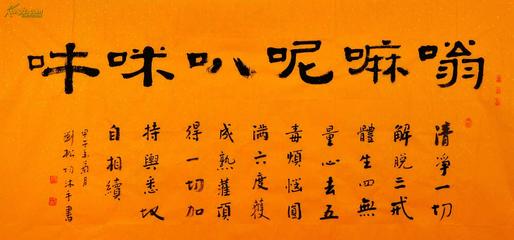 嗡嘛呢叭咪吽
清淨一切
解脫三戒
體生四無
量心去五
毒煩惱圓
滿六度獲
成熟灌頂
得一切加
持與悉地
自相續
甲午年菊月
劉松均沐手書